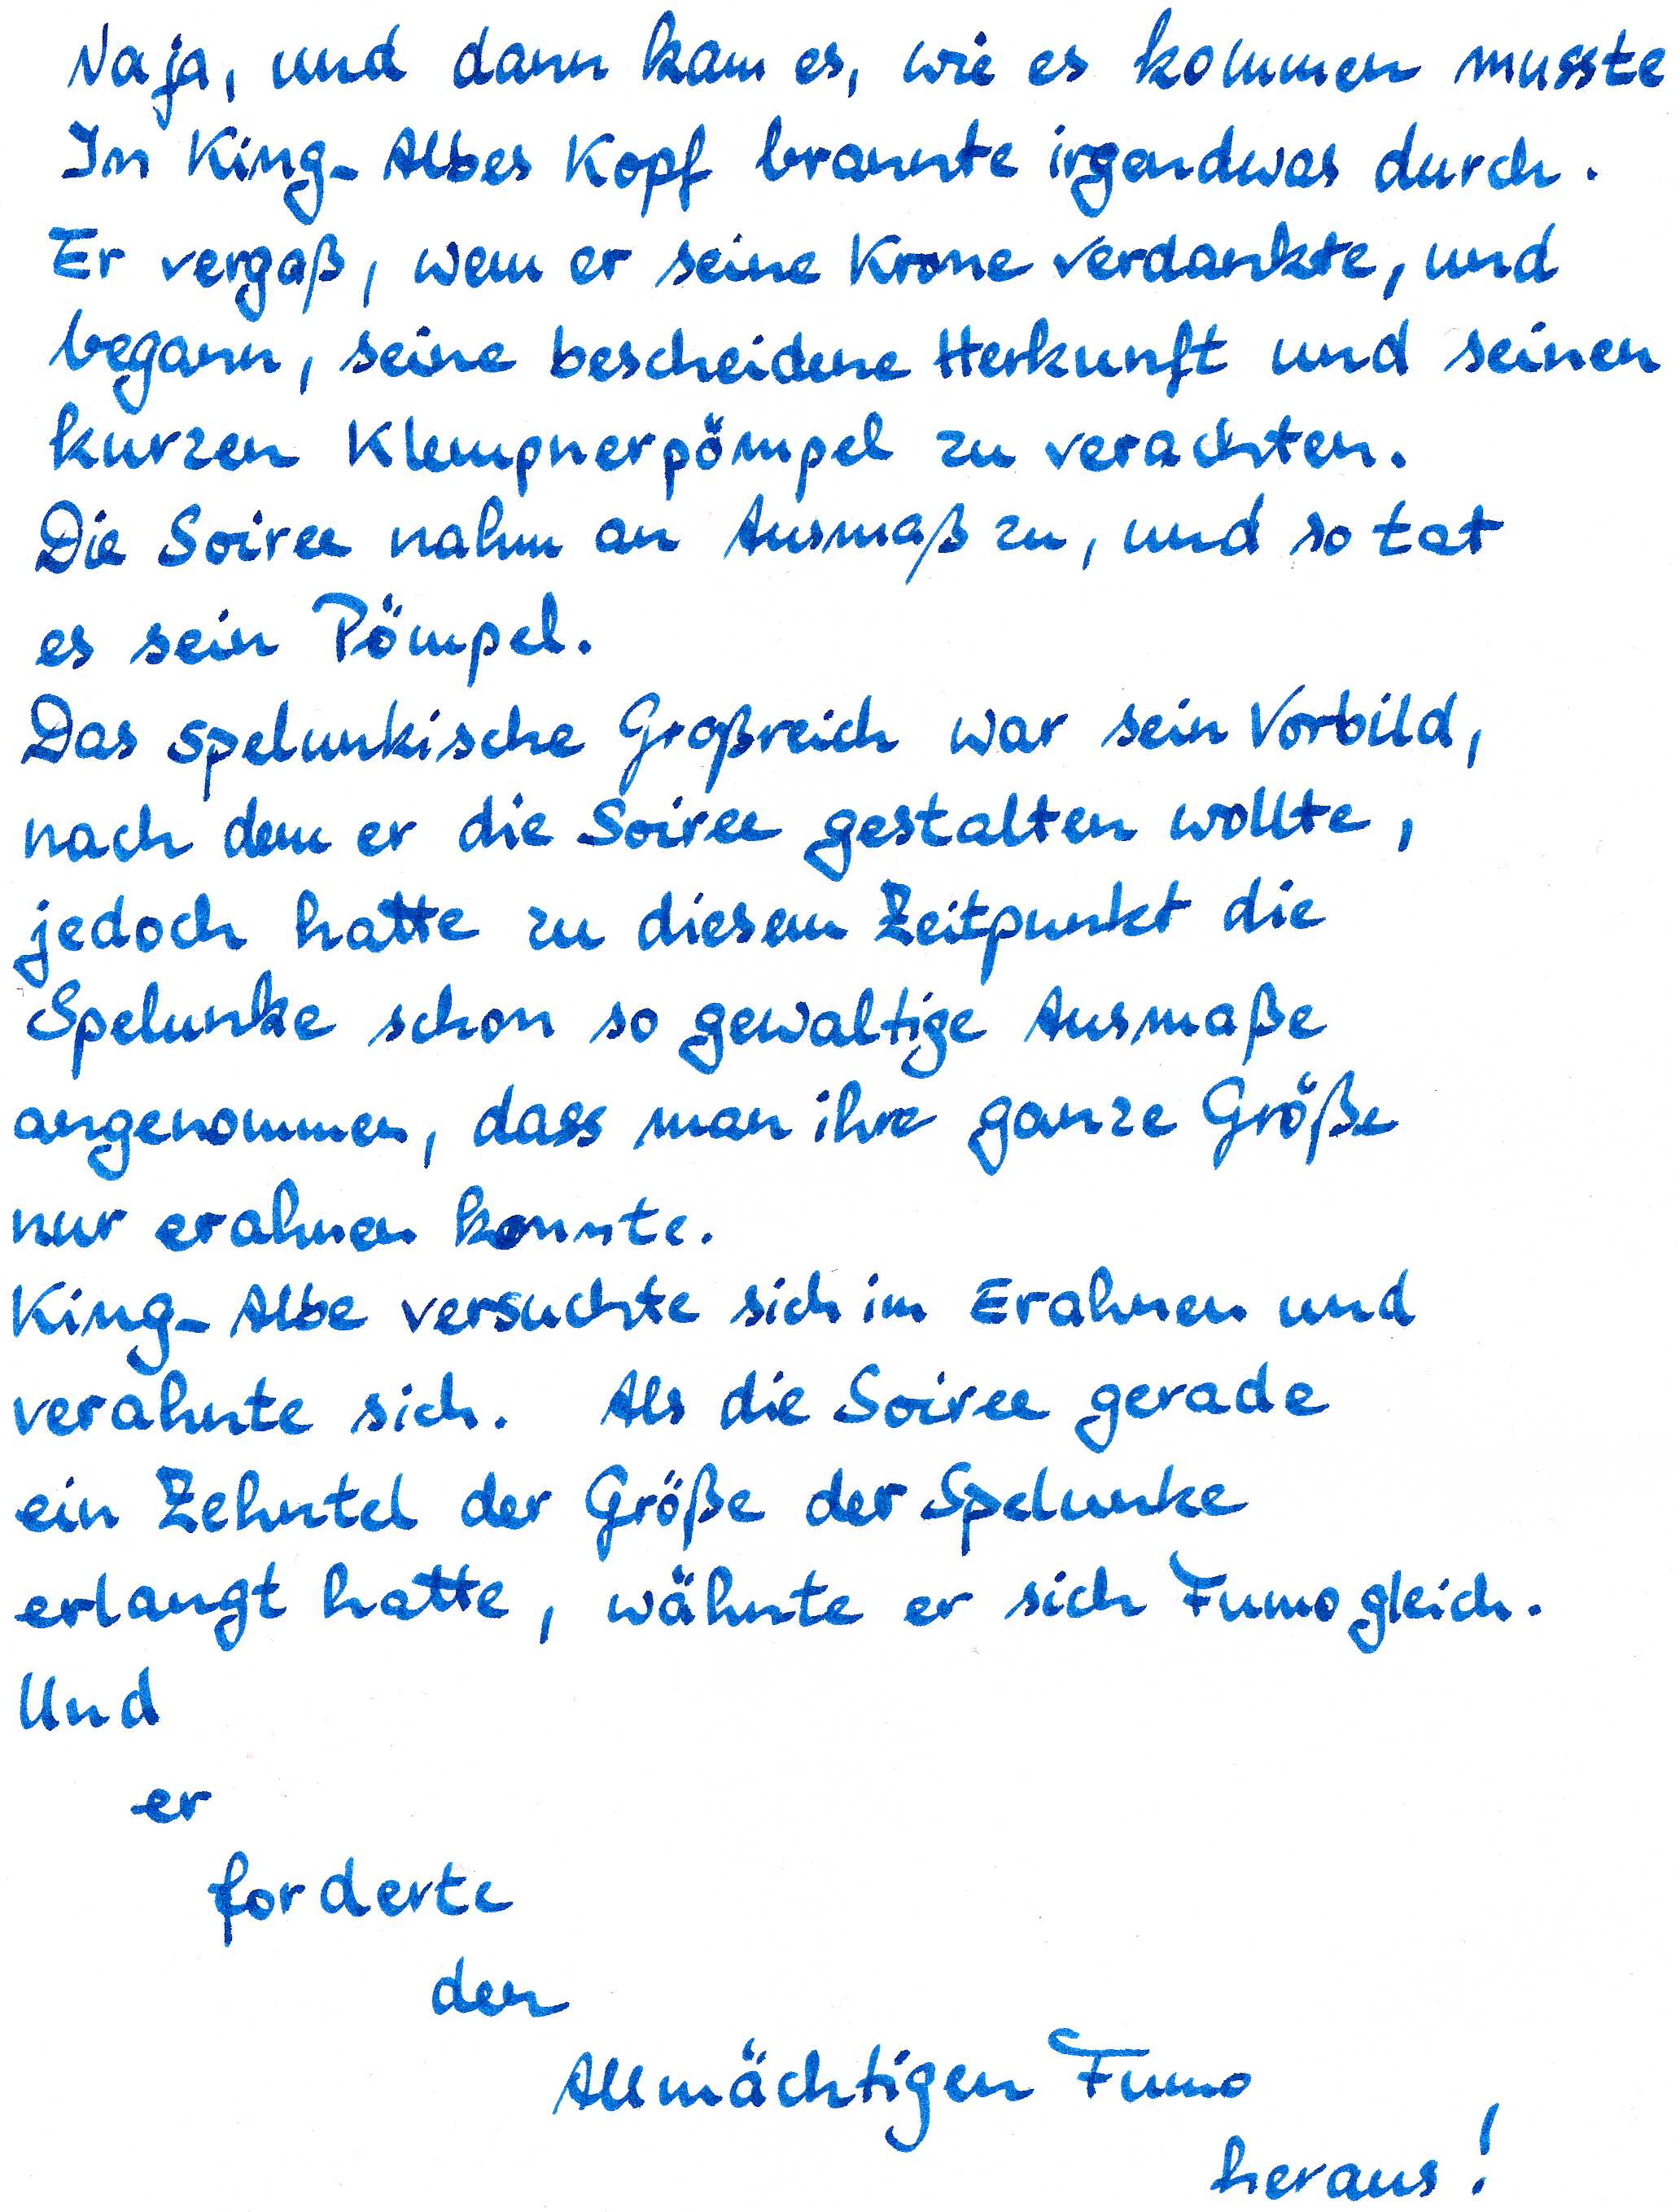 Naja, und dann kam es, wie es kommen musste
In King-Albes Kopf brannte irgendwas durch.
Er vergaß, wem er seine Krone verdankte, und
begann, seine bescheidene Herkunft und seinen
kurzen Klempnerpömpel zu verachten.
Die Soiree nahm an Ausmaß zu, und so tat
es sein Pömpel.
Das spelunkische Großreich war sein Vorbild,
nach dem er die Soiree gestalten wollte,
jedoch hatte zu diesem Zeitpunkt die
Spelunke schon so gewaltige Ausmaße
angenommen, dass man ihre ganze Größe
nur erahnen konnte.
King-Albe versuchte sich im Erahnen und
verahnte sich. Als die Soiree gerade
ein Zehntel der Größe der Spelunke
erlangt hatte, wähnte er sich Fumo gleich.
Und
er
forderte
den
Allmächtigen Fumo
heraus!